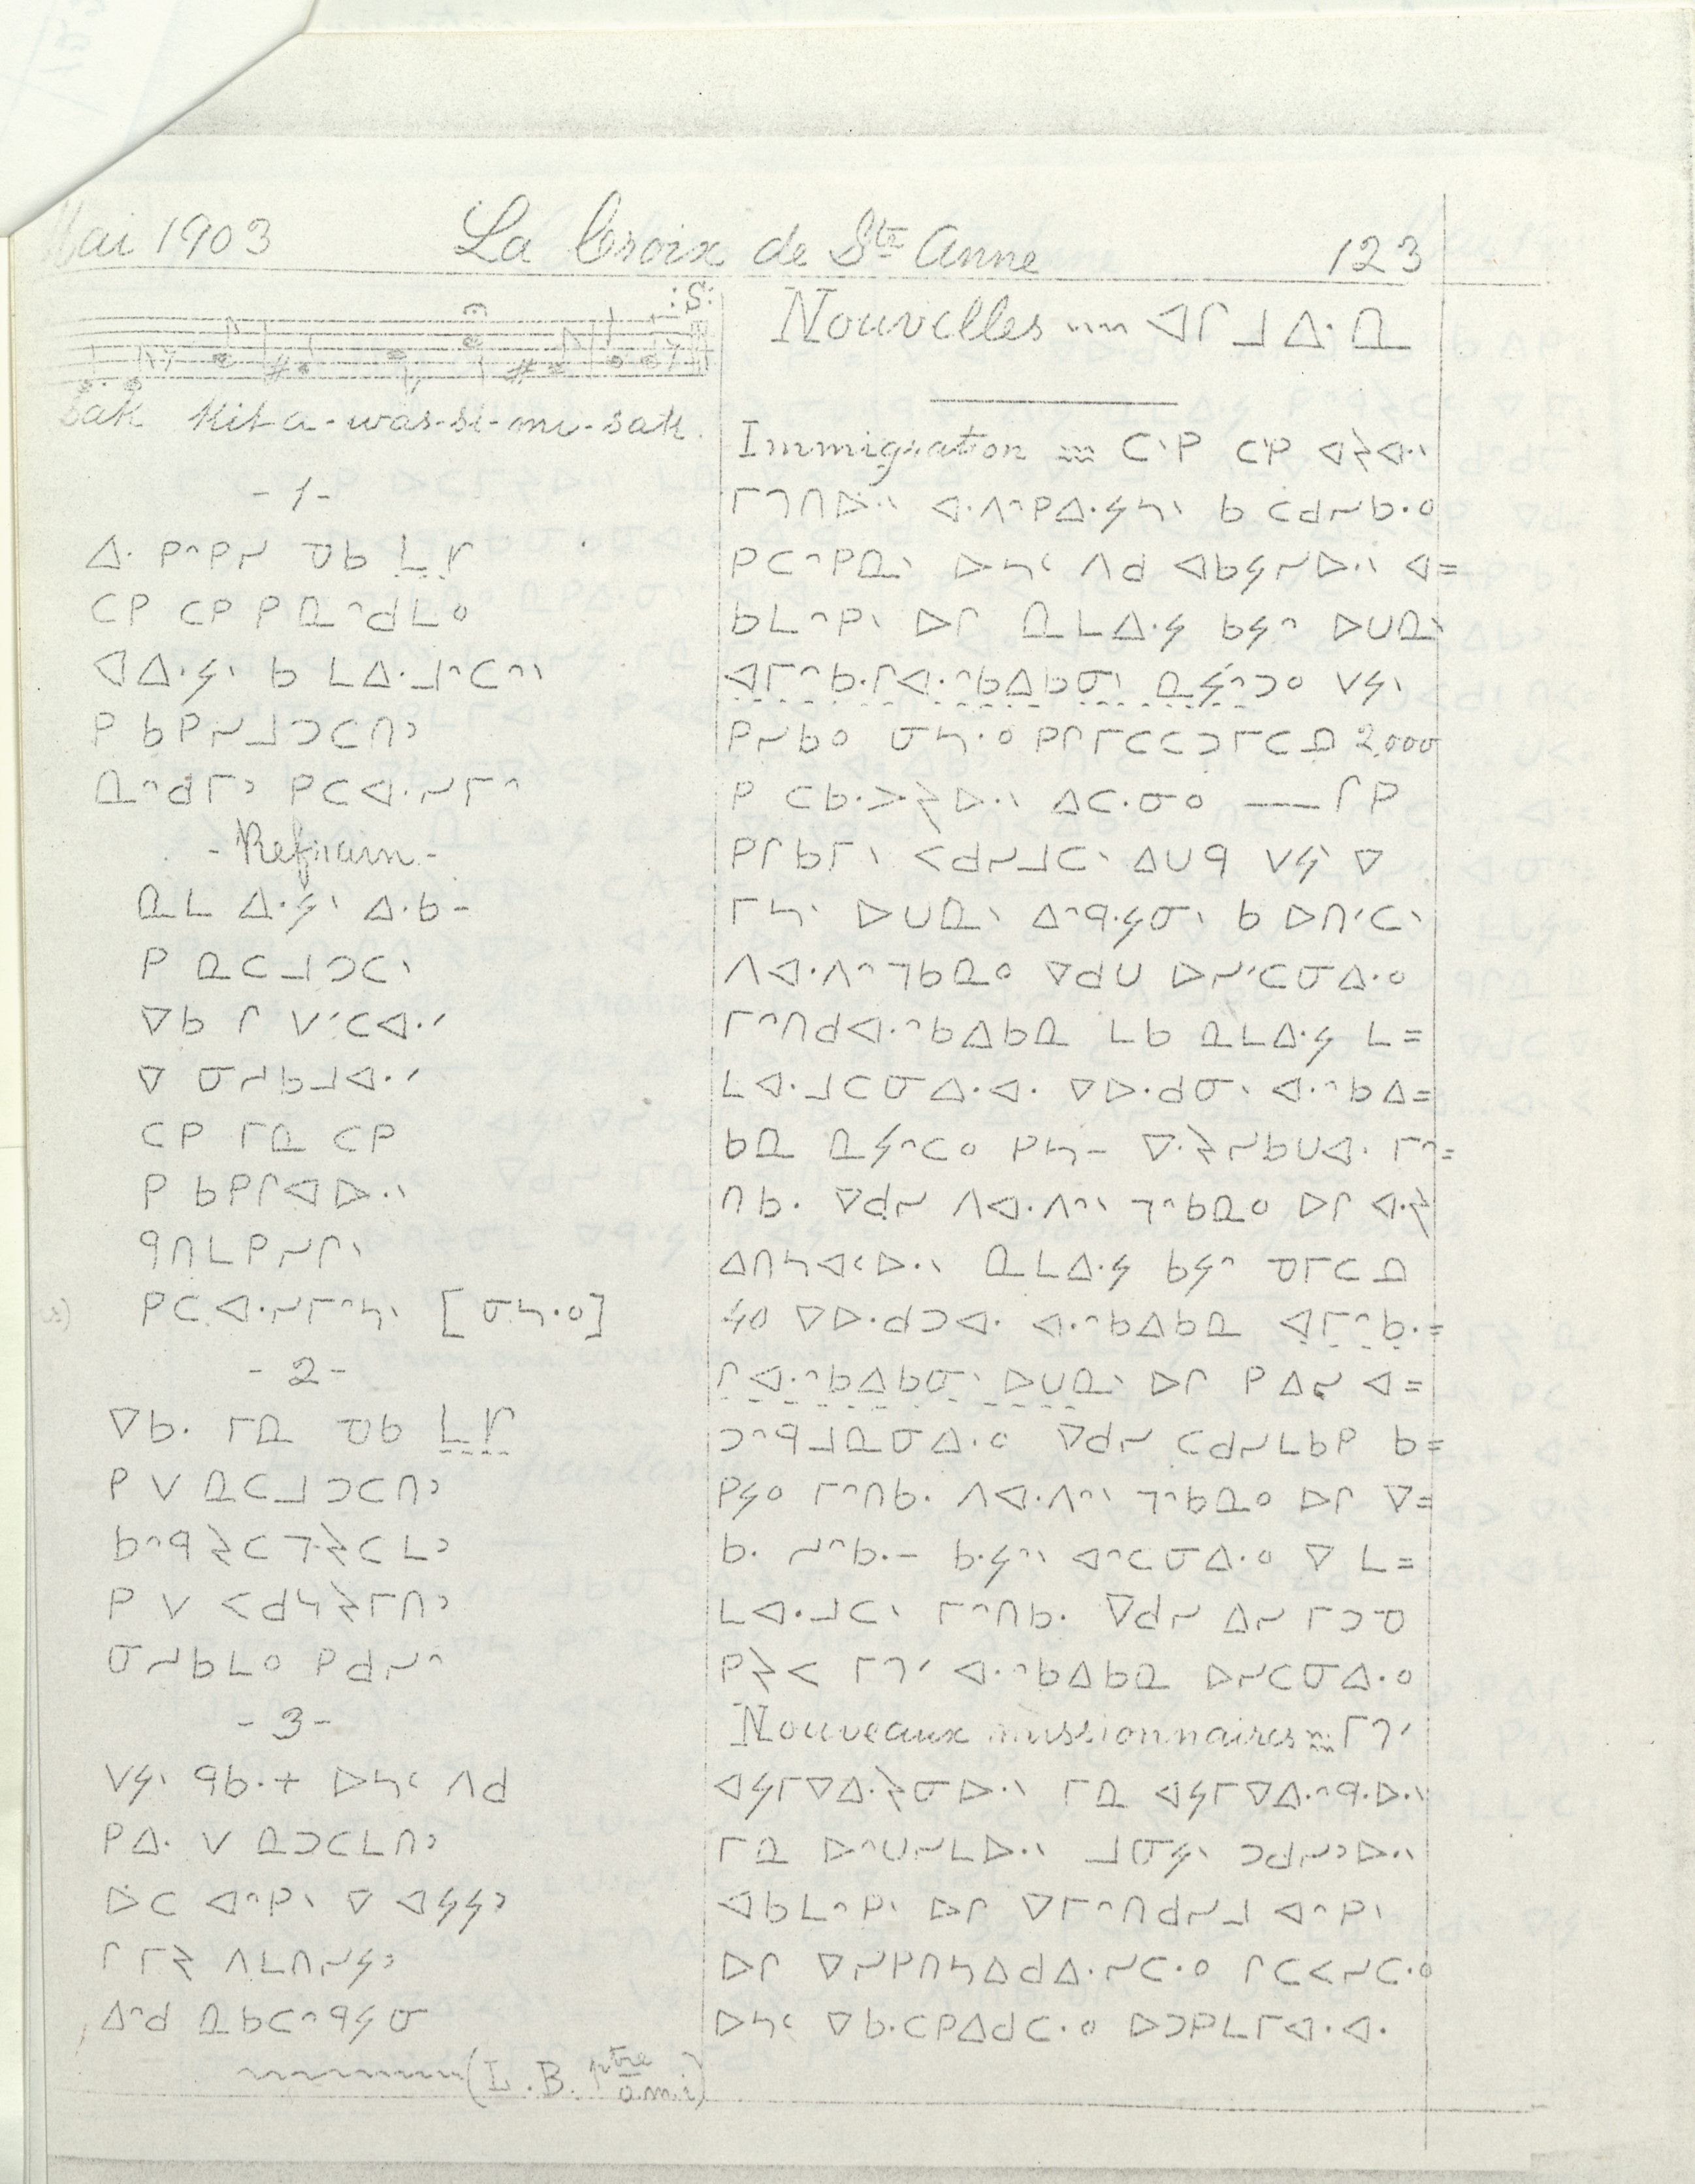 Mai 1903 La Croix de Ste Anne 123
:S:
sak kit a-was-si-mi-sak.
- 1 -
ᐃᐧ ᑭᐢᑭᓯ ᓀᑲ ᒪᒋ
ᑕᑭ ᑕᑭ ᑭ ᓇᐢᑯᒪᐤ
ᐊᐃᐧᔭᐠ ᑲ ᒪᐃᐧᒧᐢᑕᐢᐠ
ᑭ ᑲᑭᓯᒧᑐᑕᑎᐣ
ᓇᐢᑯᒥᐣ ᑭᑕᐊᐧᓯᒥᐢ
- Refrain -
ᓇᒪ ᐃᐧᔭᐠ ᐃᐧᑲ -
ᑭ ᓇᑕᒧᑐᑕᐠ
ᐁᑲ ᒋ ᐯᐟᑕᐊᐧᐟ
ᐁ ᓂᓯᑲᒧᐊᐧᐟ
ᑕᑭ ᒥᓇ ᑕᑭ
ᑭ ᑲᑭᒋᐊᐅᐧᐠ
ᑫᑎᒪᑭᓯᒋᐠ
ᑭᑕᐊᐧᓯᒥᐢᓴᐠ [ᓂᓴᐧᐤ]
- 2 -
ᐁᑲᐧ ᒥᓇ ᓀᑲ ᒪᒋ
ᑭ ᐯ ᓇᑕᒧᑐᑕᑎᐣ
ᑲᐢᑫᔨᑕᒣᔨᑕᒪᐣ
ᑭ ᐯ ᐸᑯᓭᔨᒥᑎᐣ
ᓂᓯᑲᒪᐤ ᑭᑯᓯᐢ
- 3 -
ᐯᔭᐠ ᑫᑲᐧ+ ᐅᓴᑊ ᐱᑯ
ᑭᐃᐧ ᐯ ᓇᑐᑕᒪᑎᐣ
ᐆᑕ ᐊᐢᑭᐠ ᐁ ᐊᔭᔭᐣ
ᒋ ᒥᔨ ᐱᒪᑎᓯᔭᐣ
ᐃᐢᑯ ᓇᑲᑕᐢᑫᔭᓂ
(L. B. ptre o.m.i)
Nouvelles ᐊᒋᒧᐃᐧᓇ
Immigration = ᑕᐠᑭ ᑕᐠᑭ ᐊᔨᐊᐧᐠ
ᒥᒉᑎᐅᐧᐠ ᐊᐧᐱᐢᑭᐃᐧᔭᓴᐠ ᑲ ᑕᑯᓯᑲᐧᐤ
ᑭᑕᐢᑭᓇᐠ ᐅᓴᑊ ᐱᑯ ᐊᑲᔭᓯᐅᐧᐠ ᐊ=
ᑲᒪᐢᑭᐠ ᐅᒋ ᓇᒪᐃᐧᔭ ᑲᔭᐢ ᐅᑌᓇᐠ
ᐊᒥᐢᑲᐧᒋᐊᐧᐢᑲᐃᑲᓂᐠ ᓇᔭᐢᑐᐤ ᐯᔭᐠ
ᑭᓯᑲᐤ ᓂᓴᐧᐤ ᑭᒋᒥᑕᑕᑐᒥᑕᓄ 2,000
ᑭ ᑕᑲᐧᐳᔨᐅᐧᐠ ᐃᑕᐧᓂᐤ — ᒋᑭ
ᑭᒋᑲᒥᐠ ᐸᑯᓯᒧᑕᐠ ᐃᑌᑫ ᐯᔭᐠ ᐁ
ᒥᓴᐠ ᐅᑌᓇᐠ ᐃᐢᑫᐧᔭᓂᐠ ᑲ ᐅᑎᐟᑕᐠ
ᐱᐊᐧᐱᐢᒣᑲᓇᐤ ᐁᑯᑌ ᐅᓯᐟᑕᓂᐃᐧᐤ
ᒥᐢᑎᑯᐊᐧᐢᑲᐃᑲᓇ ᒪᑲ ᓇᒪᐃᐧᔭ ᒪ=
ᒪᐊᐧᒧᑕᓂᐃᐧᐊᐧ ᐁᐅᐧᑯᓂᐠ ᐊᐧᐢᑲᐃ=
ᑲᓇ ᓇᔭᐢᑕᐤ ᑭᓴ- ᐁᐧᔨᓯᑲᑌᐊᐧ ᒥᐢ=
ᑎᑲᐧ ᐁᑯᓯ ᐱᐊᐧᐱᐢᐠ ᒣᐢᑲᓇᐤ ᐅᒋ ᐊᐧᔨ
ᐃᑎᓴᐊᑊᐅᐧᐠ ᓇᒪᐃᐧᔭ ᑲᔭᐢ ᓀᒥᑕᓄ
40 ᐁᐅᐧᑯᑐᐊᐧ ᐊᐧᐢᑲᐃᑲᓇ ᐊᒥᐢᑲᐧ=
ᒋᐊᐧᐢᑲᐃᑲᓂᐠ ᐅᑌᓇᐠ ᐅᒋ ᑭ ᐃᓯ ᐊ=
ᑐᐢᑫᒧᓇᓂᐃᐧᐤ ᐁᑯᓯ ᑕᑯᓯᒪᑲᑭ ᑲ=
ᑭᔭᐤ ᒥᐢᑎᑲᐧ ᐱᐊᐧᐱᐢᐠ ᒣᐢᑲᓇᐤ ᐅᒋ ᐁ=
ᑲᐧ ᓯᐢᑲᐧ- ᑲᐧᔭᐢᐠ ᐊᐢᑕᓂᐃᐧᐤ ᐁ ᒪ=
ᒪᐊᐧᒧᑕᐠ ᒥᐢᑎᑲᐧ ᐁᑯᓯ ᐃᓯ ᒥᑐᓀ
ᑭᔨᐸ ᒥᒉᐟ ᐊᐧᐢᑲᐃᑲᓇ ᐅᓯᑕᓂᐃᐧᐤ
Nouveaux missionnaires = ᒥᒉᐟ
ᐊᔭᒥᐁᐃᐧᔨᓂᐅᐧᐠ ᒥᓇ ᐊᔭᒥᐁᐃᐧᐢᑫᐧᐅᐧᐠ
ᒥᓇ ᐅᐢᑌᓯᒪᐅᐧᐠ ᒧᓂᔭᐠ ᑐᑯᓯᐣᐅᐧᐠ
ᐊᑲᒪᐢᑭᐠ ᐅᒋ ᐁᒥᐢᑎᑯᓯᒧ ᐊᐢᑭᐠ
ᐅᒋ ᐁᓯᑭᑎᓴᐃᑯᐃᐧᓯᑕᐧᐤ ᒋᑕᐸᓯᑕᐧᐤ
ᐅᓴᑊ ᐁᑲᐧᑕᑭᐃᑯᑕᐧᐤ ᐅᑐᑭᒪᒥᐊᐧᐊᐧ